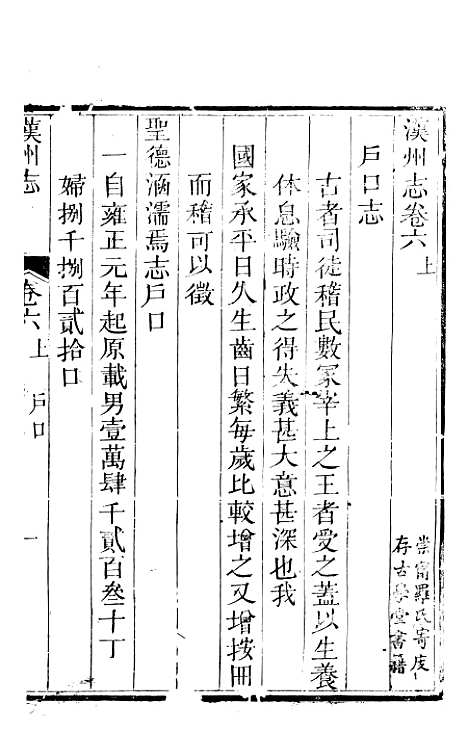 漢州志卷六上
崇甯羅氏寄庋
存古學堂書籍
戶口志
古者司徒稽民數冢宰上之王者受之蓋以生養
休息驗時政之得失義甚大意甚深也我
國家承平日久生齒日繁每歲比較增之又增按冊
而稽可以徵
聖德涵濡焉志戶口
一自雍正元年起原載男壹萬肆千貳百叁十丁
婦捌千捌百貳拾口
漢州志
卷六上
戶口
一